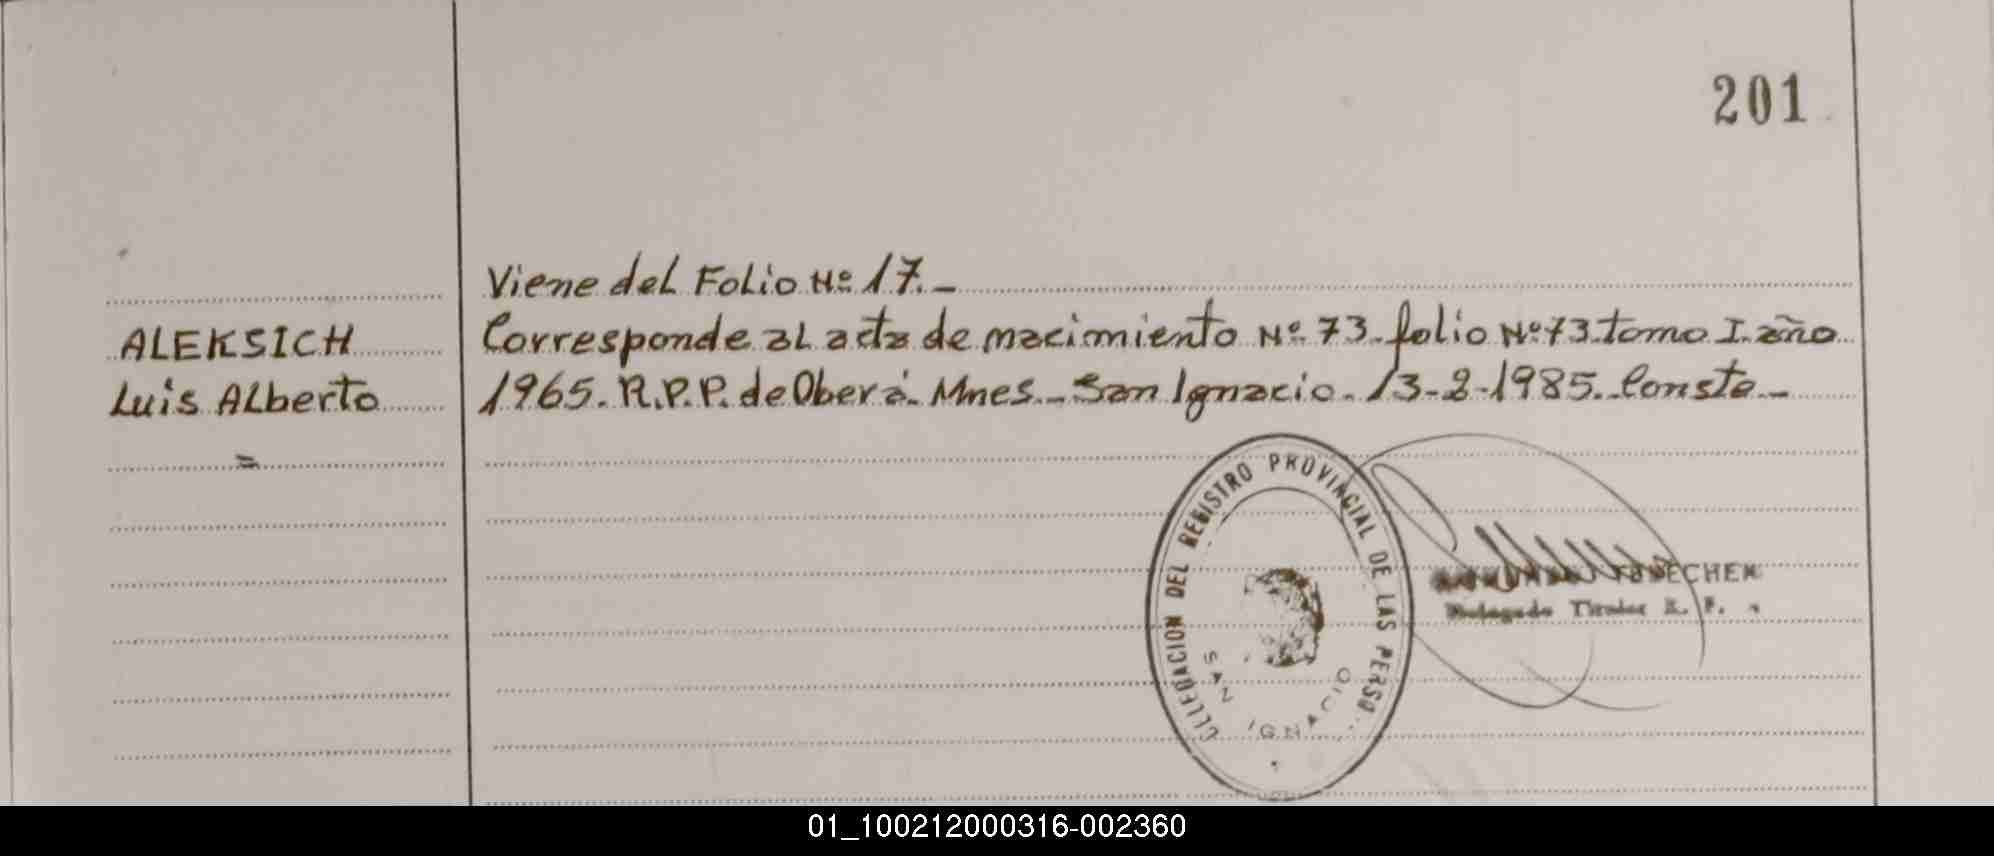 201
Viene del Folio Nº 17.-
ALEKSICH
Corresponde al acta de nacimiento Nº 73. folio Nº 73. tomo I. año
Luis Alberto
1965. R.P.P. de Oberá. Mnes.- San Ignacio. 13-2-1985. Conste.-
=
DELEGACION DEL REGISTRO PROVINCIAL DE LAS PERSO
SAN IGNACIO
Delegado Titular R. P.
01_100212000316-002360